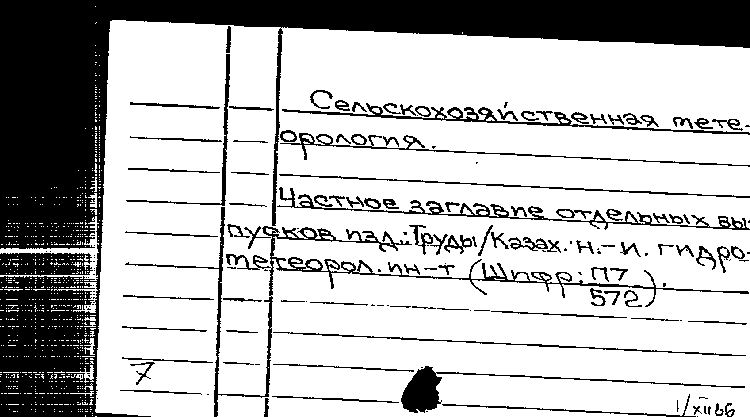 Сельскохозяйственная мете-
орология.
Частное заглавие отдельных вы-
пусков изд.: Труды/Казах. н.-и. гидро-
метеорол. ин-т (Шифр: П7
572).
7
1/XII 66